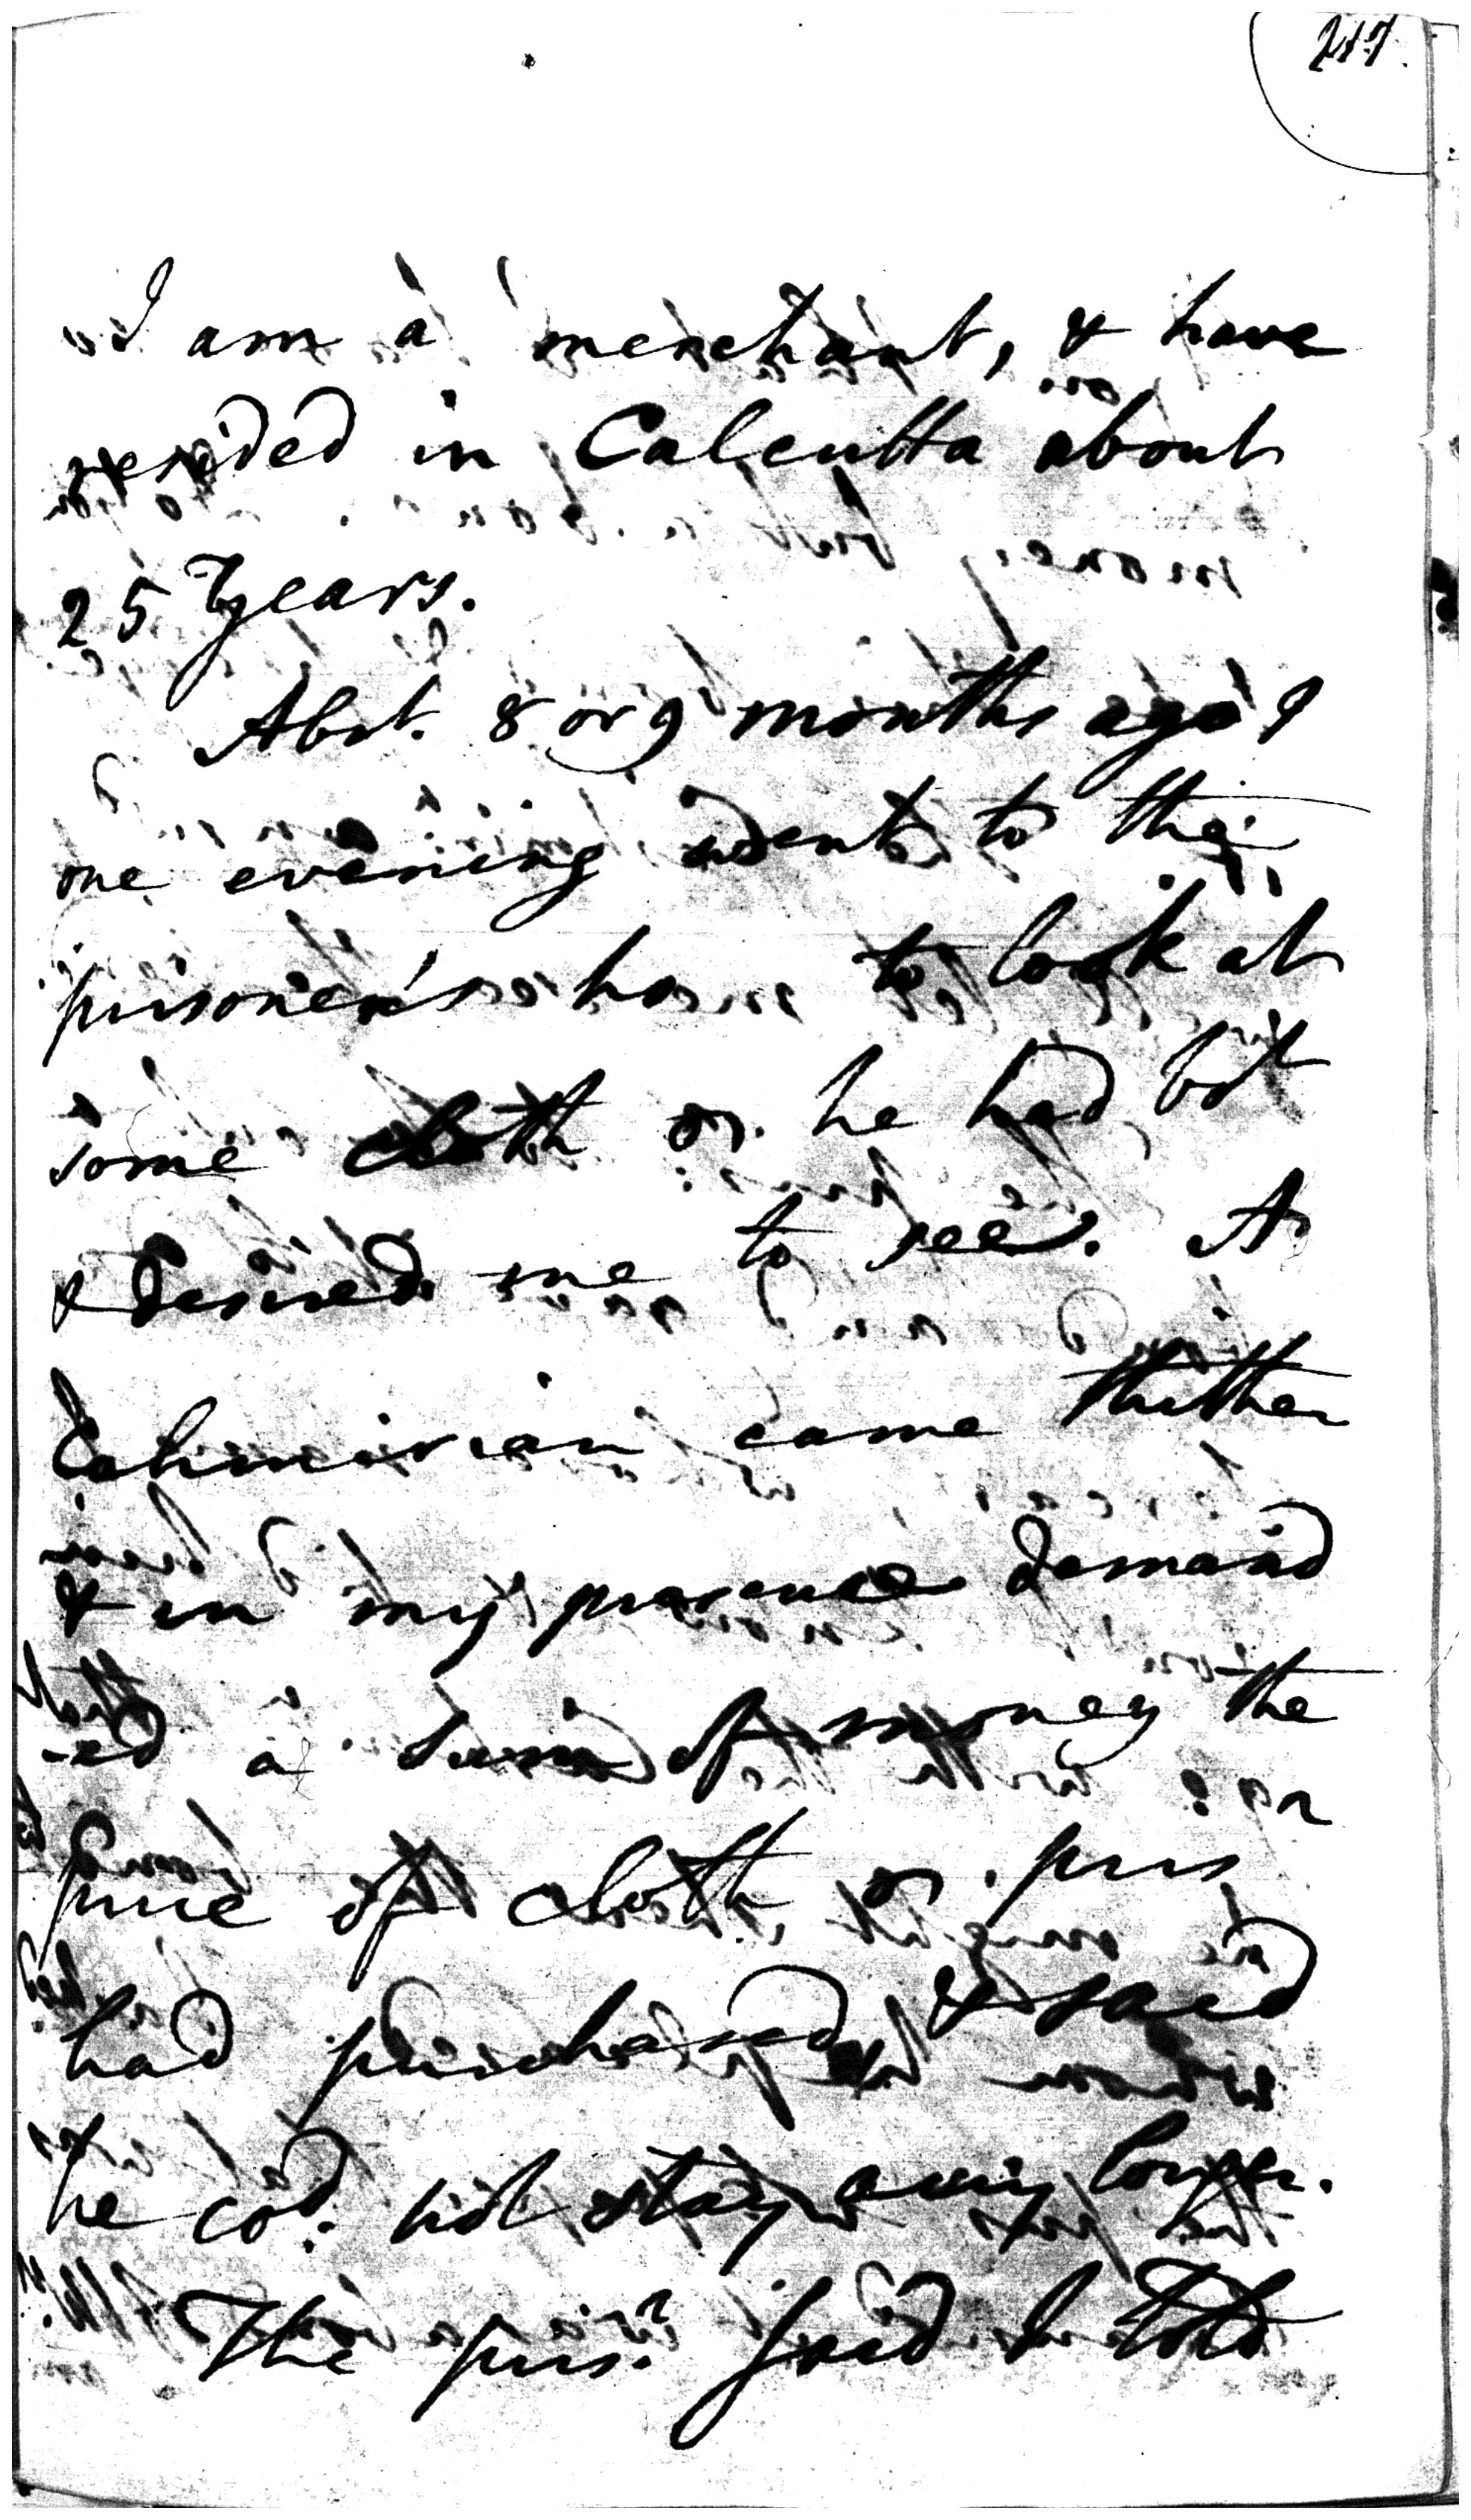 217.
I am a merchant, & have
resided in Calcutta about
25 Years.
Abt. 8 or 9 months ago I
one evening went to the
prisoner's ho to look at
some cloth he had bt
& desired me to see. A
came thither
& in my presence demand
-ed a sum of money the
price of cloth prisr
had purchased & said
he cod. not stay any longer.
The prisr. said I told